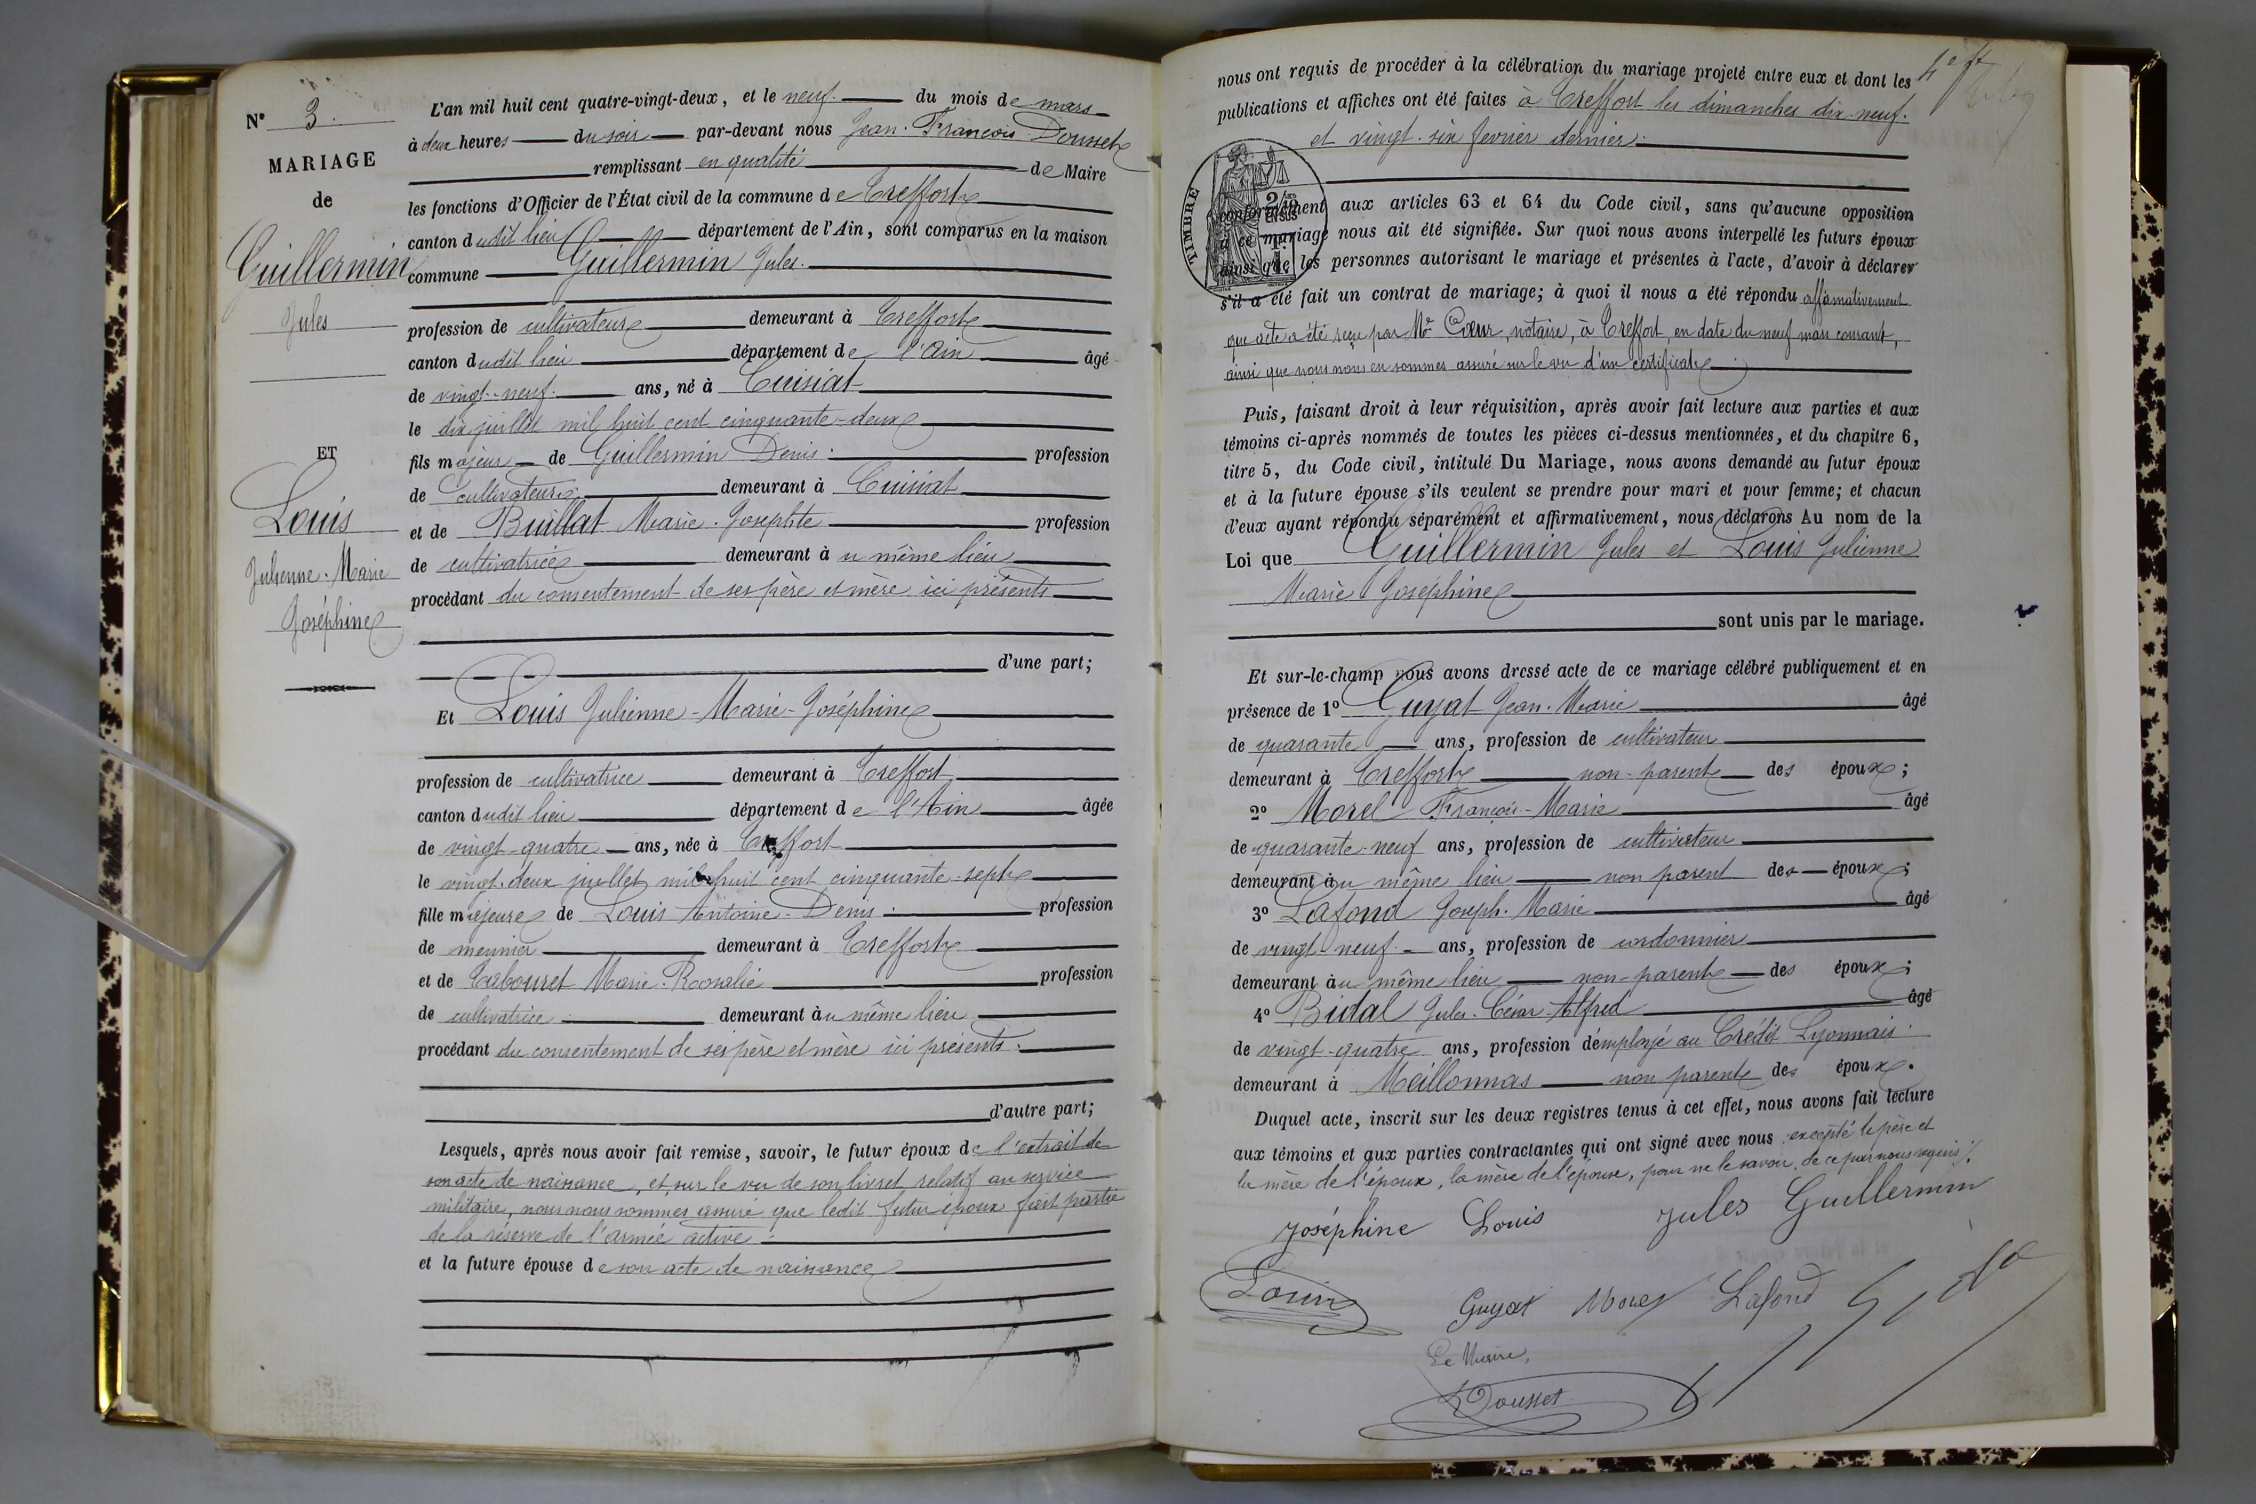 N° 3.
MARIAGE
de
Guillermin
Jules
ET
Louis
Julienne-Marie
Joséphine
L'an mil huit cent quatre-vingt-deux, et le neuf du mois de mars
à deux heures du soir par-devant nous Jean-François Dousset
remplissant en qualité de Maire
les fonctions d'Officier de l'État civil de la commune de Treffort
canton dudit lieu département de l'Ain, sont comparus en la maison
commune Guillermin Jules.
profession de cultivateur demeurant à Treffort
canton dudit lieu département de l'Ain âgé
de vingt-neuf ans, né à Cuisiat
le dix juillet mil huit cent cinquante-deux
fils majeur de Guillermin Denis. profession
de cultivateur demeurant à Cuisiat
et de Buillat Marie-Josephte profession
de cultivatrice demeurant au même lieu
procédant du consentement de ses père et mère ici présents
d'une part;
Et Louis Julienne-Marie-Joséphine
profession de cultivatrice demeurant à Treffort
canton dudit lieu département de l'Ain âgée
de vingt-quatre ans, née à Treffort
le vingt-deux juillet mil huit cent cinquante-sept
fille majeure de Louis Antoine-Denis. profession
de meunier demeurant à Treffort
et de Tabouret Marie-Rosalie profession
de cultivatrice demeurant au même lieu
procédant du consentement de ses père et mère ici présents.
d'autre part;
Lesquels, après nous avoir fait remise, savoir, le futur époux de l'extrait de
son acte de naissance, et sur le vu de son livret relatif au service
militaire, nous nous sommes assuré que ledit futur époux fait partie
de la réserve de l'armée active.
et la future épouse de son acte de naissance
nous ont requis de procéder à la célébration du mariage projeté entre eux et dont les
publications et affiches ont été faites à Treffort les dimanches dix-neuf.
et vingt-six fevrier dernier.
TIMBRE
conformément aux articles 63 et 64 du Code civil, sans qu'aucune opposition
à ce mariage nous ait été signifiée. Sur quoi nous avons interpellé les futurs époux
ainsi que les personnes autorisant le mariage et présentes à l'acte, d'avoir à déclarer
s'il a été fait un contrat de mariage; à quoi il nous a été répondu affirmativement
que acte a été reçu par Me Cœur, notaire, à Treffort, en date du neuf mars courant,
ainsi que nous nous en sommes assuré sur le vu d'un certificat
Puis, faisant droit à leur réquisition, après avoir fait lecture aux parties et aux
témoins ci-après nommés de toutes les pièces ci-dessus mentionnées, et du chapitre 6,
titre 5, du Code civil, intitulé Du Mariage, nous avons demandé au futur époux
et à la future épouse s'ils veulent se prendre pour mari et pour femme; et chacun
d'eux ayant répondu séparément et affirmativement, nous déclarons Au nom de la
Loi que Guillermin Jules et Louis Julienne
Marie Joséphine
sont unis par le mariage.
Et sur-le-champ nous avons dressé acte de ce mariage célébré publiquement et en
présence de 1° Guyat Jean-Marie âgé
de quarante ans, profession de cultivateur
demeurant à Treffort non-parent des époux;
2° Morel François-Marie âgé
de quarante-neuf ans, profession de cultivateur
demeurant au même lieu non parent des époux;
3° Lafond Joseph-Marie âgé
de vingt-neuf ans, profession de cordonnier
demeurant au même lieu non-parent des époux;
4° Bidal Jules-César-Alfred âgé
de vingt-quatre ans, profession d'employé au Crédit Lyonnais.
demeurant à Meillonnas non parent des époux.
Duquel acte, inscrit sur les deux registres tenus à cet effet, nous avons fait lecture
aux témoins et aux parties contractantes qui ont signé avec nous excepté le père et
la mère de l'époux, la mère de l'épouse, pour ne le savoir, de ce par nous requis
Joséphine Louis Jules Guillermin
Louis
Guyat Morel Lafond
Le Maire,
Dousset